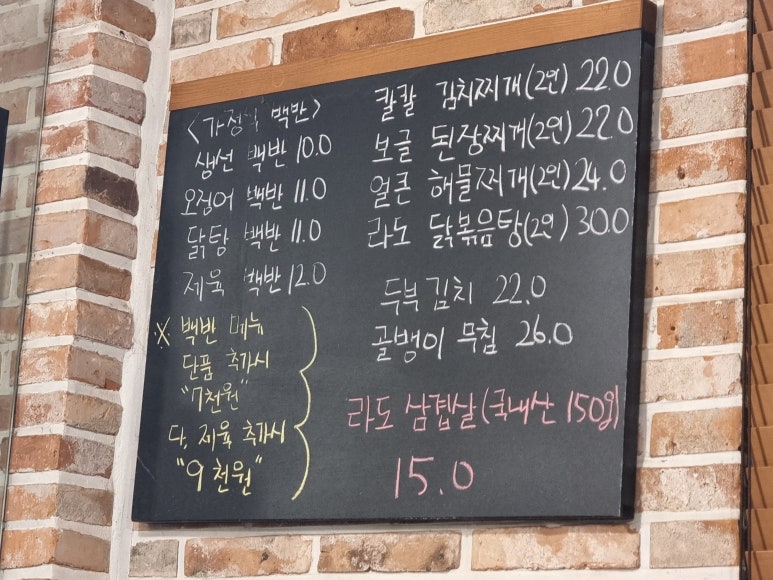 <가정식 백반>
생선 백반 10.0
오징어 백반 11.0
닭탕 백반 11.0
제육 백반 12.0
※ 백반 메뉴
단품 추가시
"7천원"
다, 제육 추가시
"9천원"
칼칼 김치찌개(2인) 22.0
보글 된장찌개(2인) 22.0
얼큰 해물찌개(2인) 24.0
라도 닭볶음탕(2인) 30.0
두부김치 22.0
골뱅이 무침 26.0
라도 삼겹살(국내산 150g)
15.0